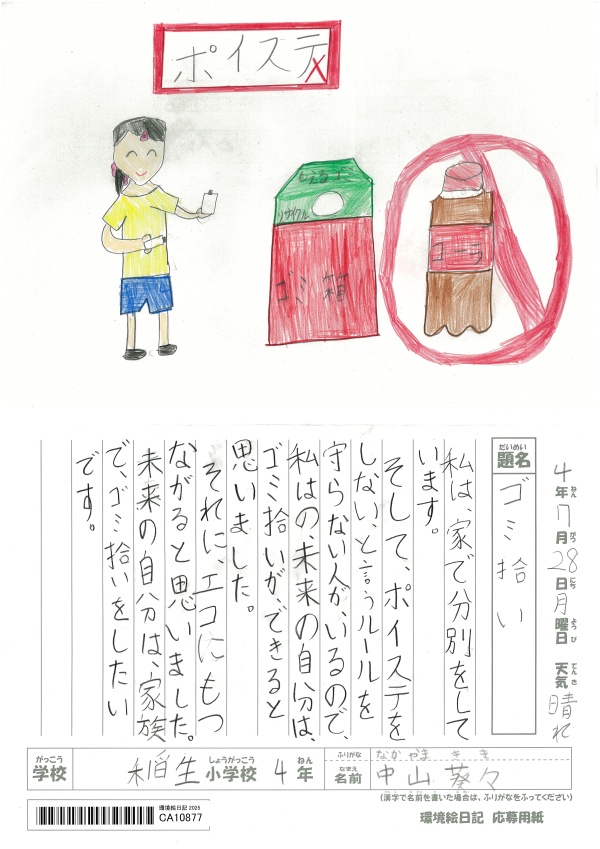 ポイステ
もえるゴミ
リサイクル
ゴミ箱
コーラ
4年7月28日月曜日 天気晴れ
ねん がつ にち ようび てんき
だいめい
題名 ゴミ拾い
私は、家で分別をして
います。
そして、ポイステを
しない、と言うルールを
守らない人が、いるので、
私はの、未来の自分は、
ゴミ拾いが、できると
思いました。
それに、エコにもつ
ながると思いました。
未来の自分は、家族
で、ゴミ拾いをしたい
です。
がっこう しょうがっこう ねん
学校 稲生小学校 4年
ふりがな なかやま きき
なまえ
名前 中山葵々
(漢字で名前を書いた場合は、ふりがなをふってください)
環境絵日記 2025
CA10877
環境絵日記 応募用紙